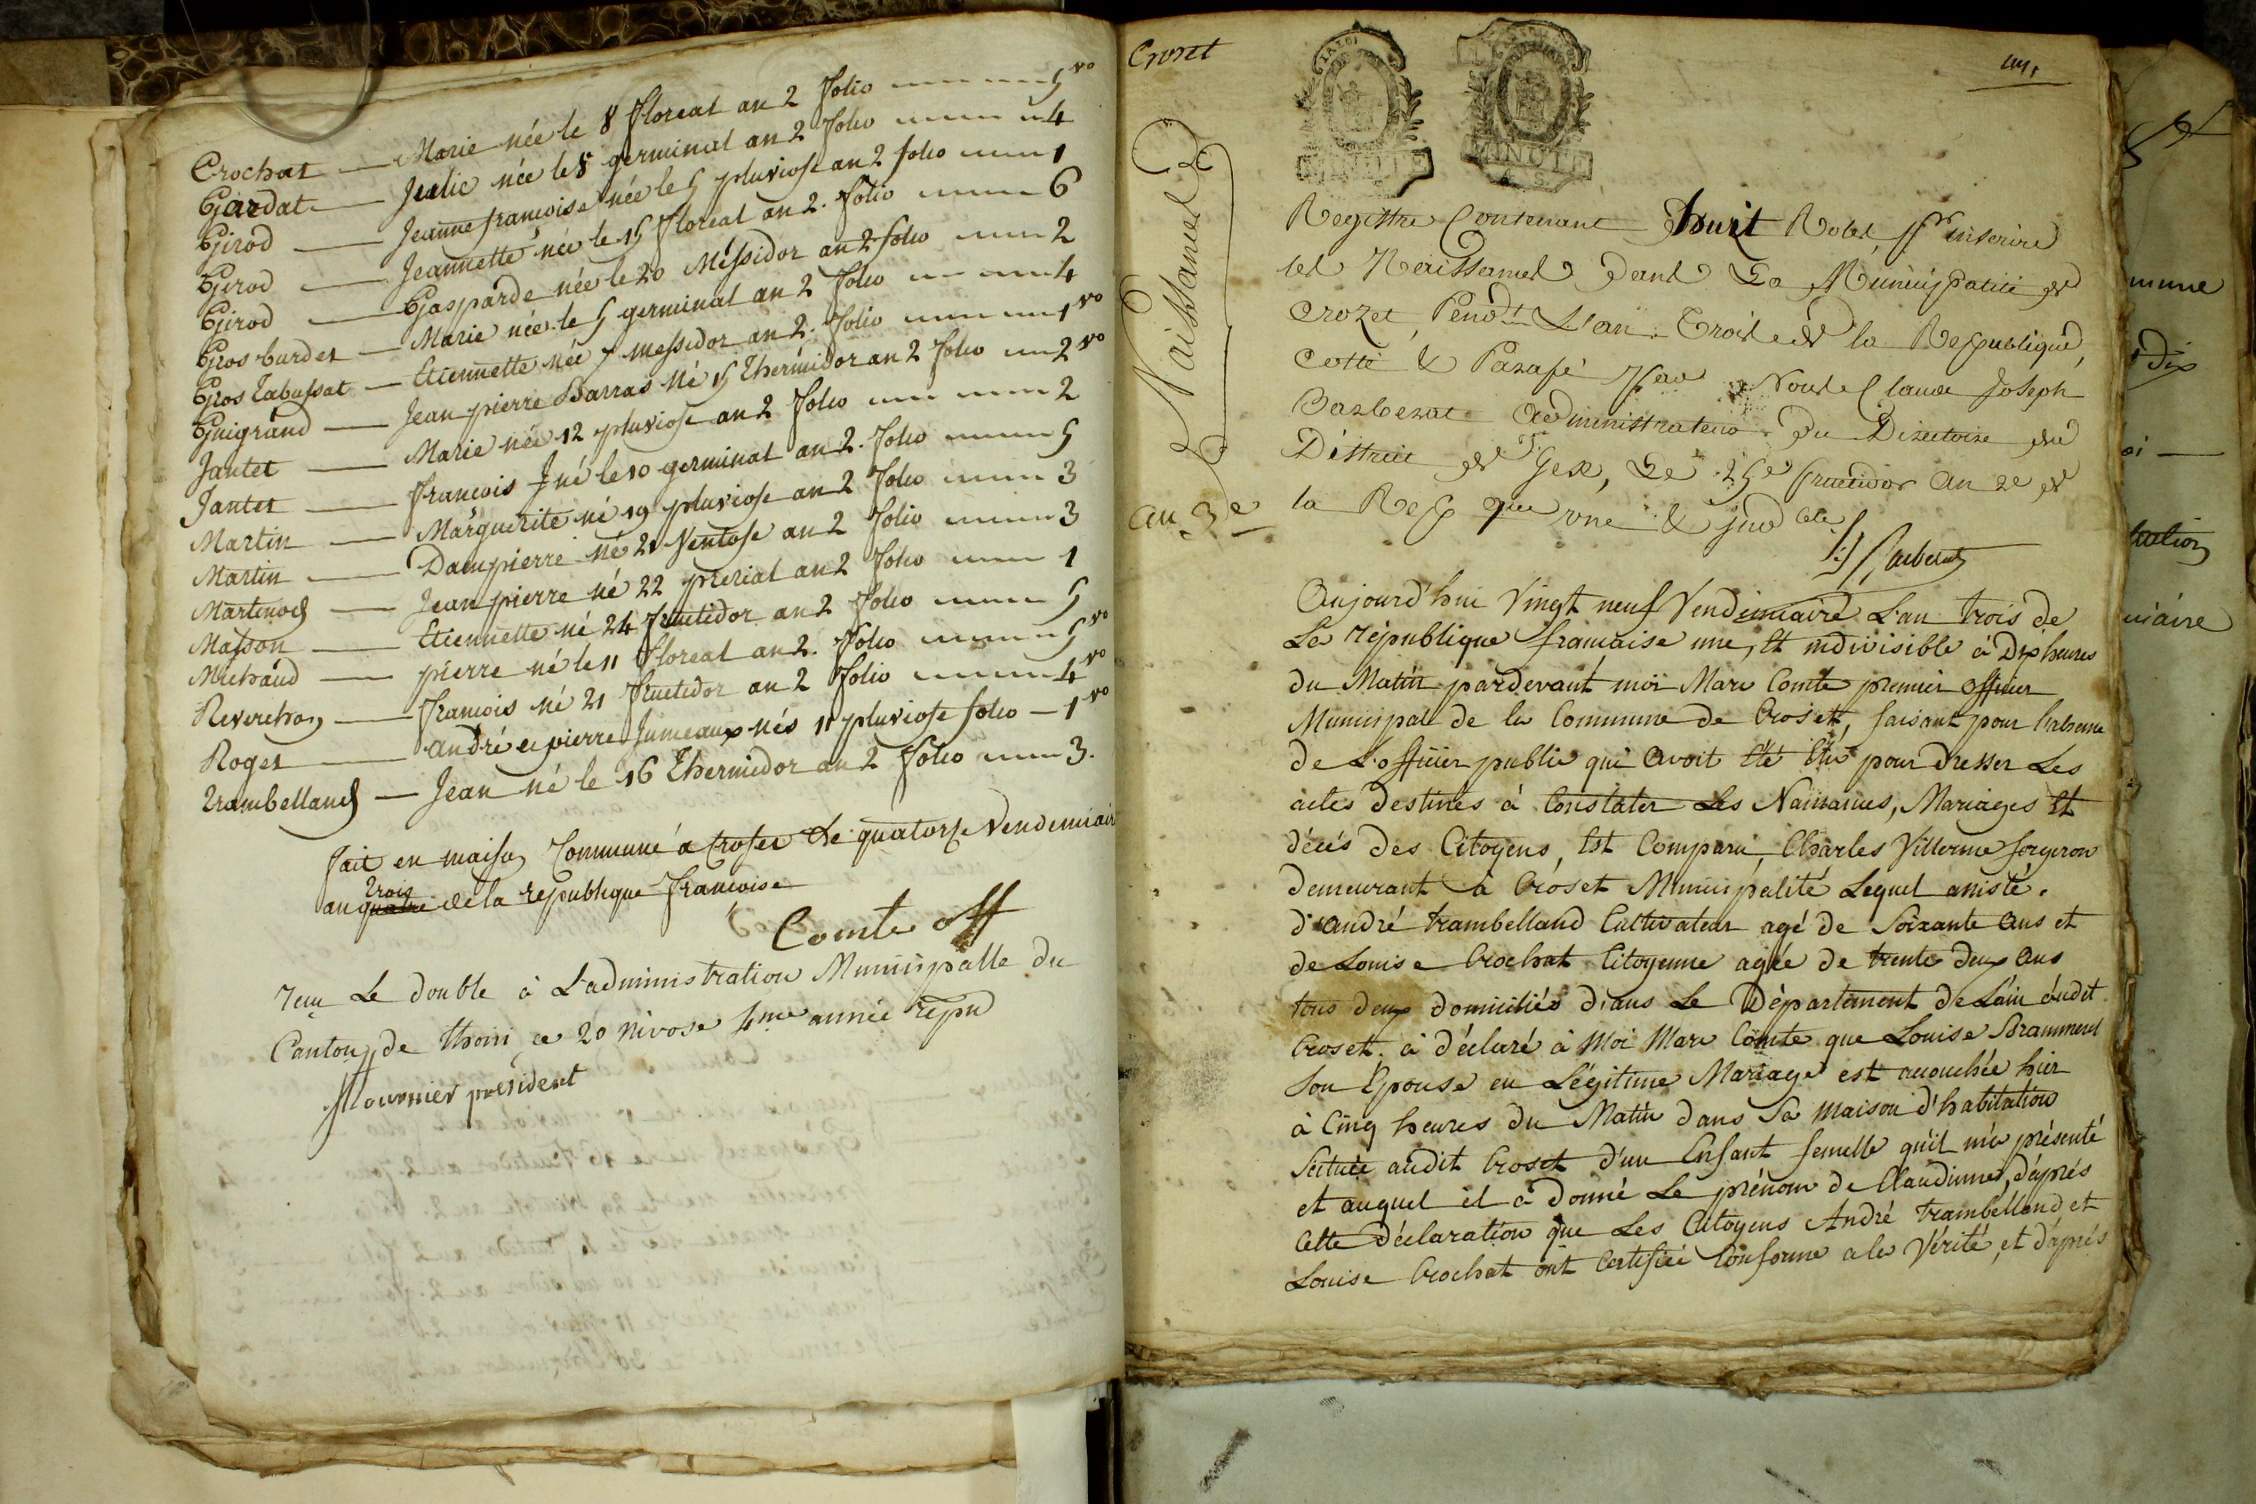 Crochat — Marie née le 8 floreal an 2 folio 5 vo
Girdat — Julie née le 8 germinal an 2 folio 4
Girod — Jeanne francoise née le 5 pluviose an 2 folio 1
Girod — Jeannette née le 15 floreal an 2. folio 6
Girod — Gasparde née le 20 Messidor an 2 folio 2
Gros burdet — Marie née le 5 germinal an 2 folio 4
Gros Tabussat — Etiennette née 7 messidor an 2. folio 1 vo
Guigrand — Jean pierre Barras né 15 Thermidor an 2 folio 2 vo
Jantet — Marie née 12 pluviose an 2 folio 2
Jantet — francois J né le 10 germinal an 2. folio 5
Martin — Marguerite né 19 pluviose an 2 folio 3
Martin — Dampierre né 21 Ventose an 2 folio 3
Martinod — Jean pierre né 22 prerial an 2 folio 1
Masson — Etiennette né 24 fructidor an 2 folio 5
Michaud — pierre né le 11 floreal an 2. folio 5 vo
Reverchon — francois né 21 fructidor an 2 folio 4 vo
Roget — andré et pierre Jumeaux nés 11 pluviose folio — 1 vo
Trambelland — Jean né le 16 Thermidor an 2 folio 3.
fait en maison Commune a Croset Le quatorse Vendemiair
an quatre trois de la republique francoise
Comte off
vu Le double à L'administration Municipalle du
Canton de Thoiri ce 20 nivose 4me année répu
fournier président
Crozet
Naissances
an 3e
Registre Contenant huit Roles pr inscrire
les Naissances dans La Municipalité de
Crozet, Pendt L'an Trois de la Republique,
Cotté & Parafé par Nous Claude Joseph
Barberat administrateur du Directoire du
District de Gex, Le 25e fructidor an 2e de
la Rep que une & indble
Barberat
Aujourd'hui Vingt neuf Vendemiaire L'an trois de
La république francaise une, et indivisible à Dix heures
du Matin pardevant moi Marc Comte premier officier
Municipale de la Commune de Croset, faisant pour l'absence
de L'officier public qui avoit été élu pour dresser Les
actes destinés à Constater Les Naissances, Mariages et
décés des Citoyens, Est Comparu, Charles Villerme forgeron
demeurant à Croset Municipalité Lequel assisté.
d'andré trambelland Cultivateur agé de Soixante ans et
de Louise Crochat Citoyenne agée de trente deux ans
tous deux domiciliés dans Le Département de L'ain audit
Croset. à déclaré à Moi Marc Comte que Louise Brammerel
Son Epouse en Légitime Mariage est accouchée hier
à Cinq heures du Matin dans Sa maison d'habitation
Scituée audit Croset d'un Enfant femelle qu'il m'a présenté
et auquel il à donné Le prénom de Claudinne, d'aprés
Cette déclaration que Les Citoyens André Trambelland et
Louise Crochat ont Certifiée Conforme a la Vérité, et d'aprés